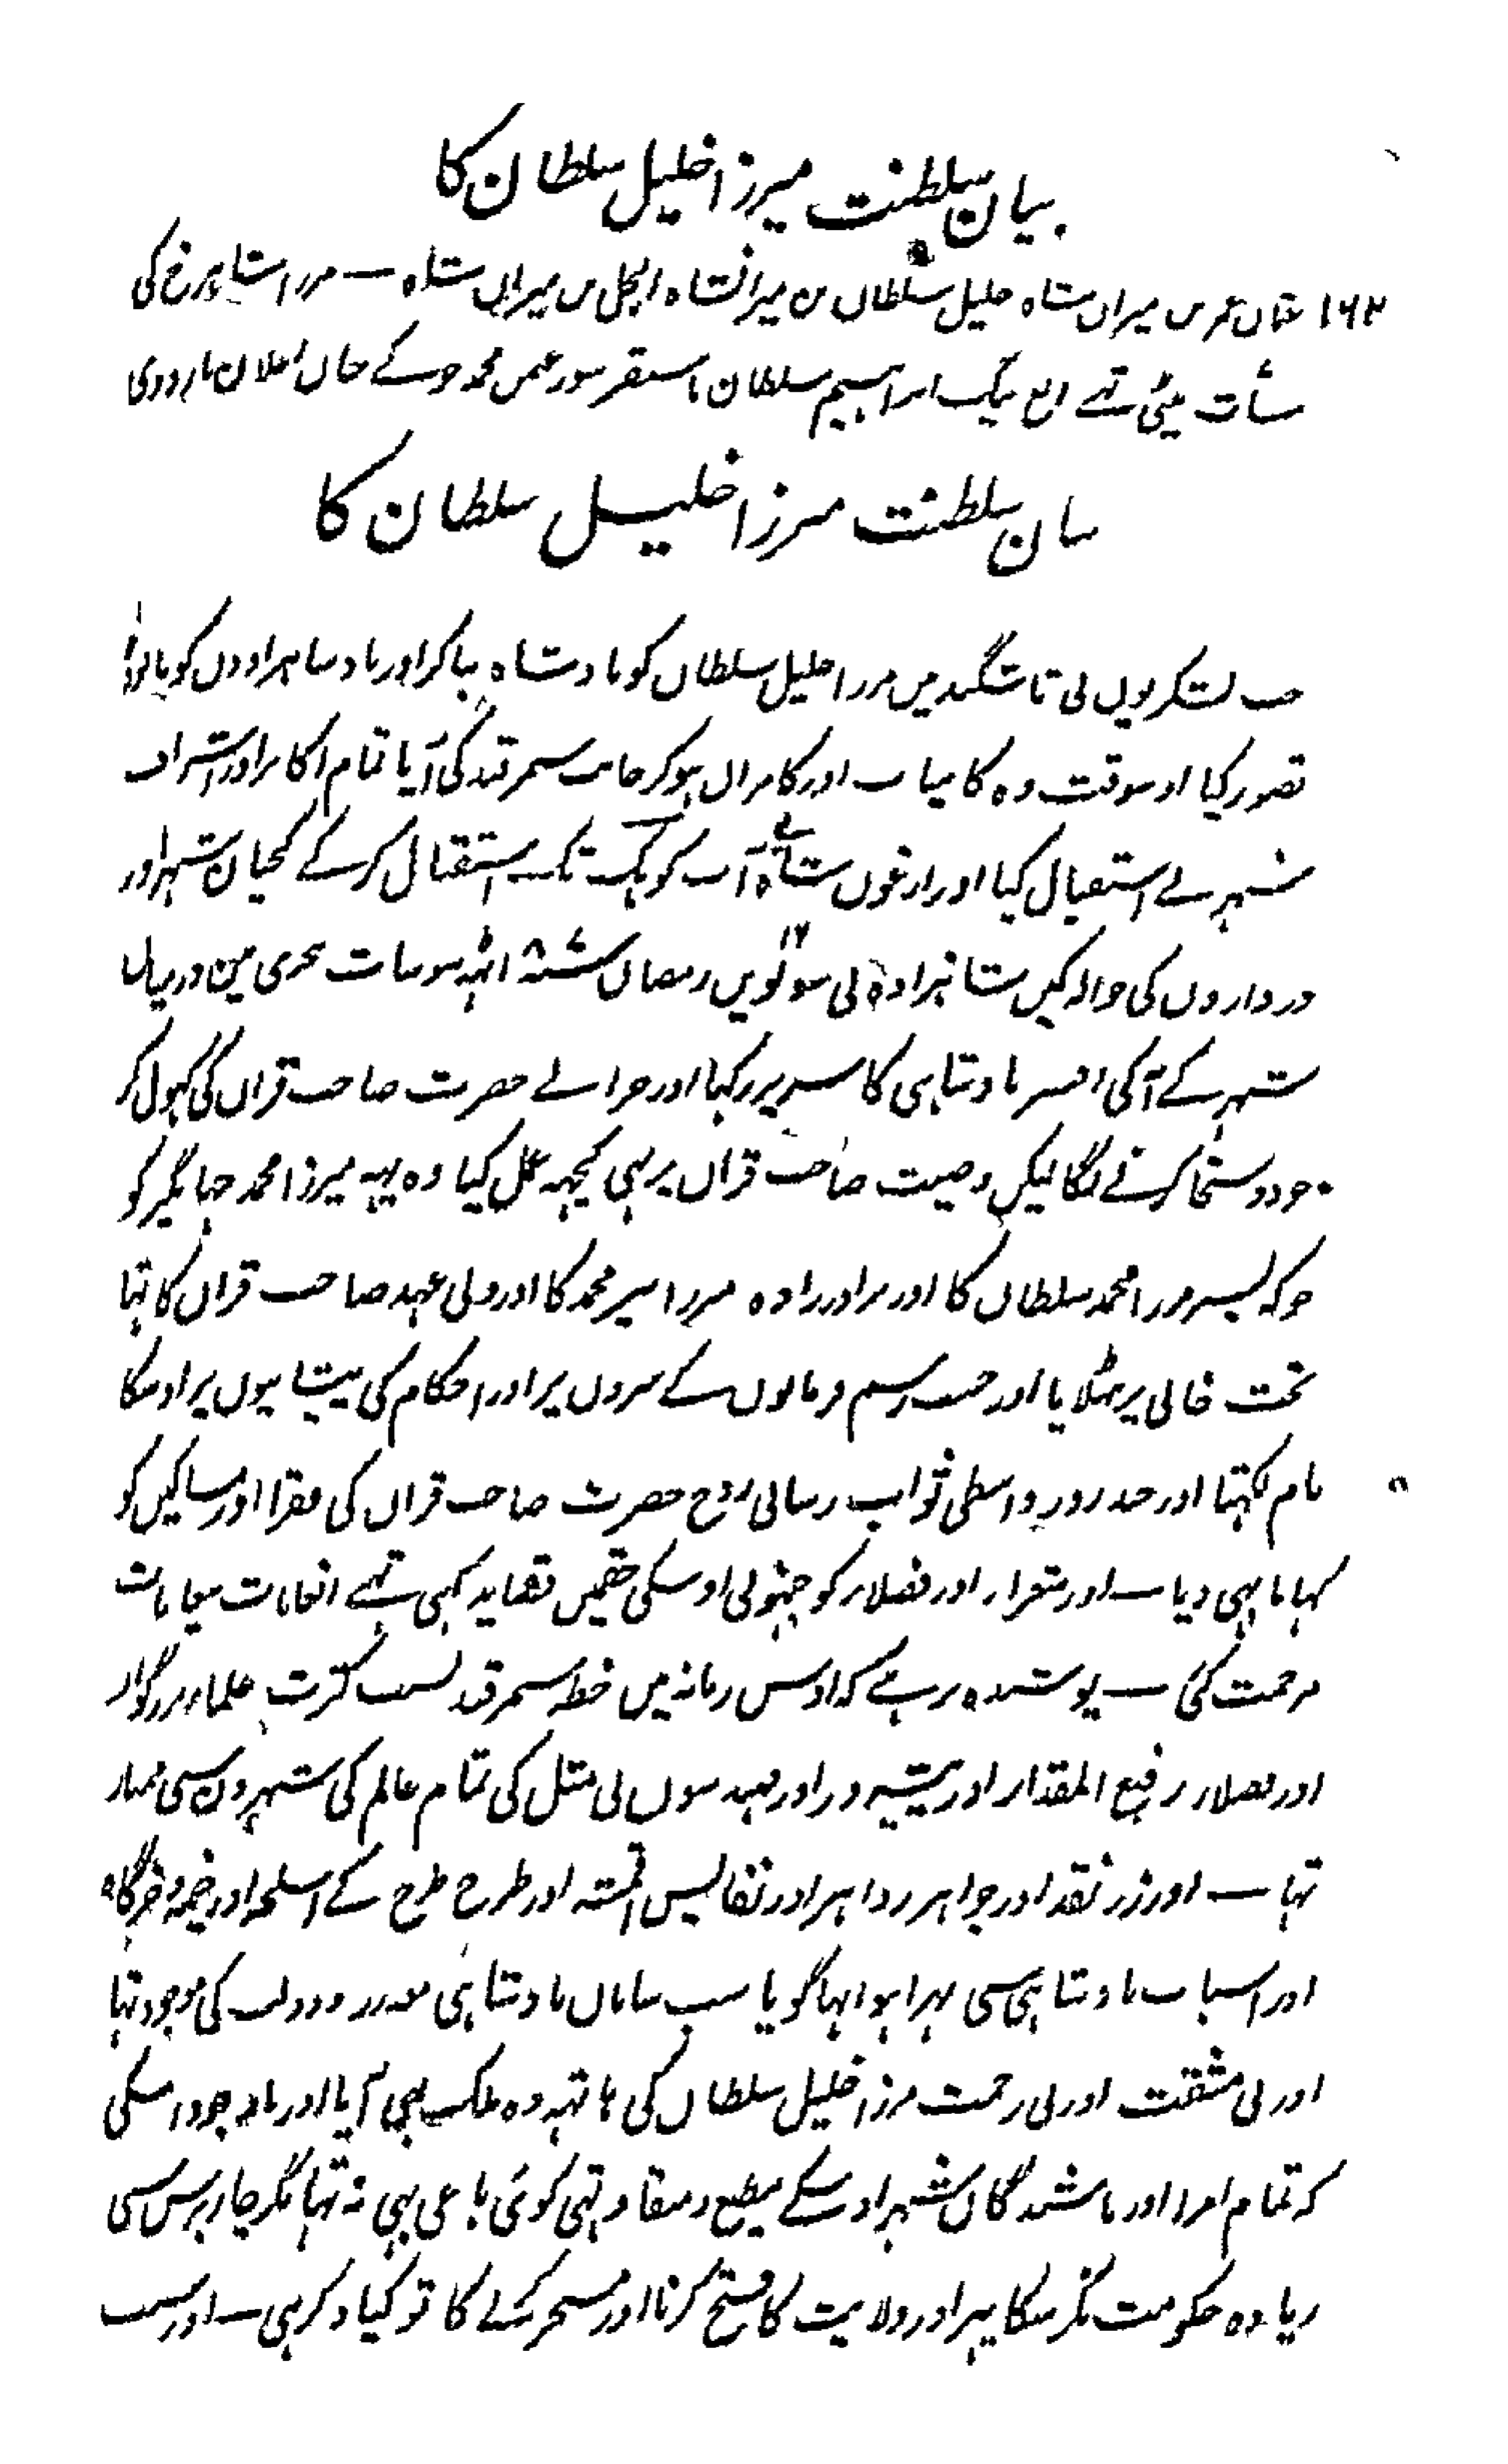 بیان سلطنت میرزا خلیل سلطان کا
۱۶۲ عثمان عمر بن میران شاہ خلیل سلطان بن میرانشاہ ایجل بن میران شاہ — مرزا شاہرخ کی
سات بیٹی تہے الغ بیگ ابراہیم سلطان بایسنقر سیورغمش محمد جوکے جان اغلان باردی
بیان سلطنت مرزا خلیل سلطان کا
جب لشکریوں نی تاشکند میں مرزا خلیل سلطان کو بادشاہ بنا کر اور بادشاہزادوں کو
تصور کیا اوسوقت وہ کامیاب اور کامران ہوکر جانب سمرقند کی آیا تمام اکابر اور اشراف
شہر نے استقبال کیا اور ارغون شاہ نے آب کوہک تک استقبال کرکے کنجیان شہر اور
دروازوں کی حوالہ کیں شاہزادہ نی سولہویں ۱۶ رمضان سنہ ۸۰۷ آٹہہ سو سات ہجری مین درمیان
شہر کے آکی افسر بادشاہی کا سر پر رکہا اور خزانے حضرت صاحب قران کی کہول کر
جود و سخا کرنے لگا لیکن وصیت صاحب قران پر بہی کچہہ عمل کیا وہ یہہ میرزا محمد جہانگیر کو
جوکہ پسر مرزا محمد سلطان کا اور برادرزادہ مرزا پیر محمد کا اور ولی عہد صاحب قران کا تہا
تخت خانی پر بٹہلایا اور حسب رسم فرمانوں کے سروں پر اور احکام کی پیشانیوں پر اوسکا
نام لکہتا اور چند روز واسطی ثواب رسانی روح حضرت صاحب قران کی فقرا اور مساکین کو
کہانا بہی دیا — اور شعراء اور فضلاء کو جنہوں نی اوسکی حقمیں قصاید کہی تہے انعامات
مرحمت کئی — پوشیدہ نرہے کہ اوس زمانہ میں خطہ سمرقند بسبب کثرت علماء بزرگوار
اور فضلاء رفیع المقدار اور پیشہ ور اور مہندسوں بی مثل کی تمام عالم کی شہرون سی ممتاز
تہا — اور زر نقد اور جواہر زواہر اور نفایس اقمشہ اور طرح طرح کے اسلحہ اور خیمہ و خرگاہ
اور اسباب بادشاہی سی بہرا ہوا تہا گویا سب سامان بادشاہی معہ زر و دولت کی موجود تہا
اور بی مشقت اور بی زحمت مرزا خلیل سلطان کی ہاتہہ وہ ملک بہی آیا اور باوجود اسکی
کہ تمام امرا اور باشندگان شہر اوسکے مطیع و منقاد تہی کوئی باغی بہی نہ تہا مگر چار برس سی
زیادہ حکومت نکرسکا پہر اور ولایت کا فتح کرنا اور مسخر کرنے کا تو کیا ذکر ہی — اور سبب